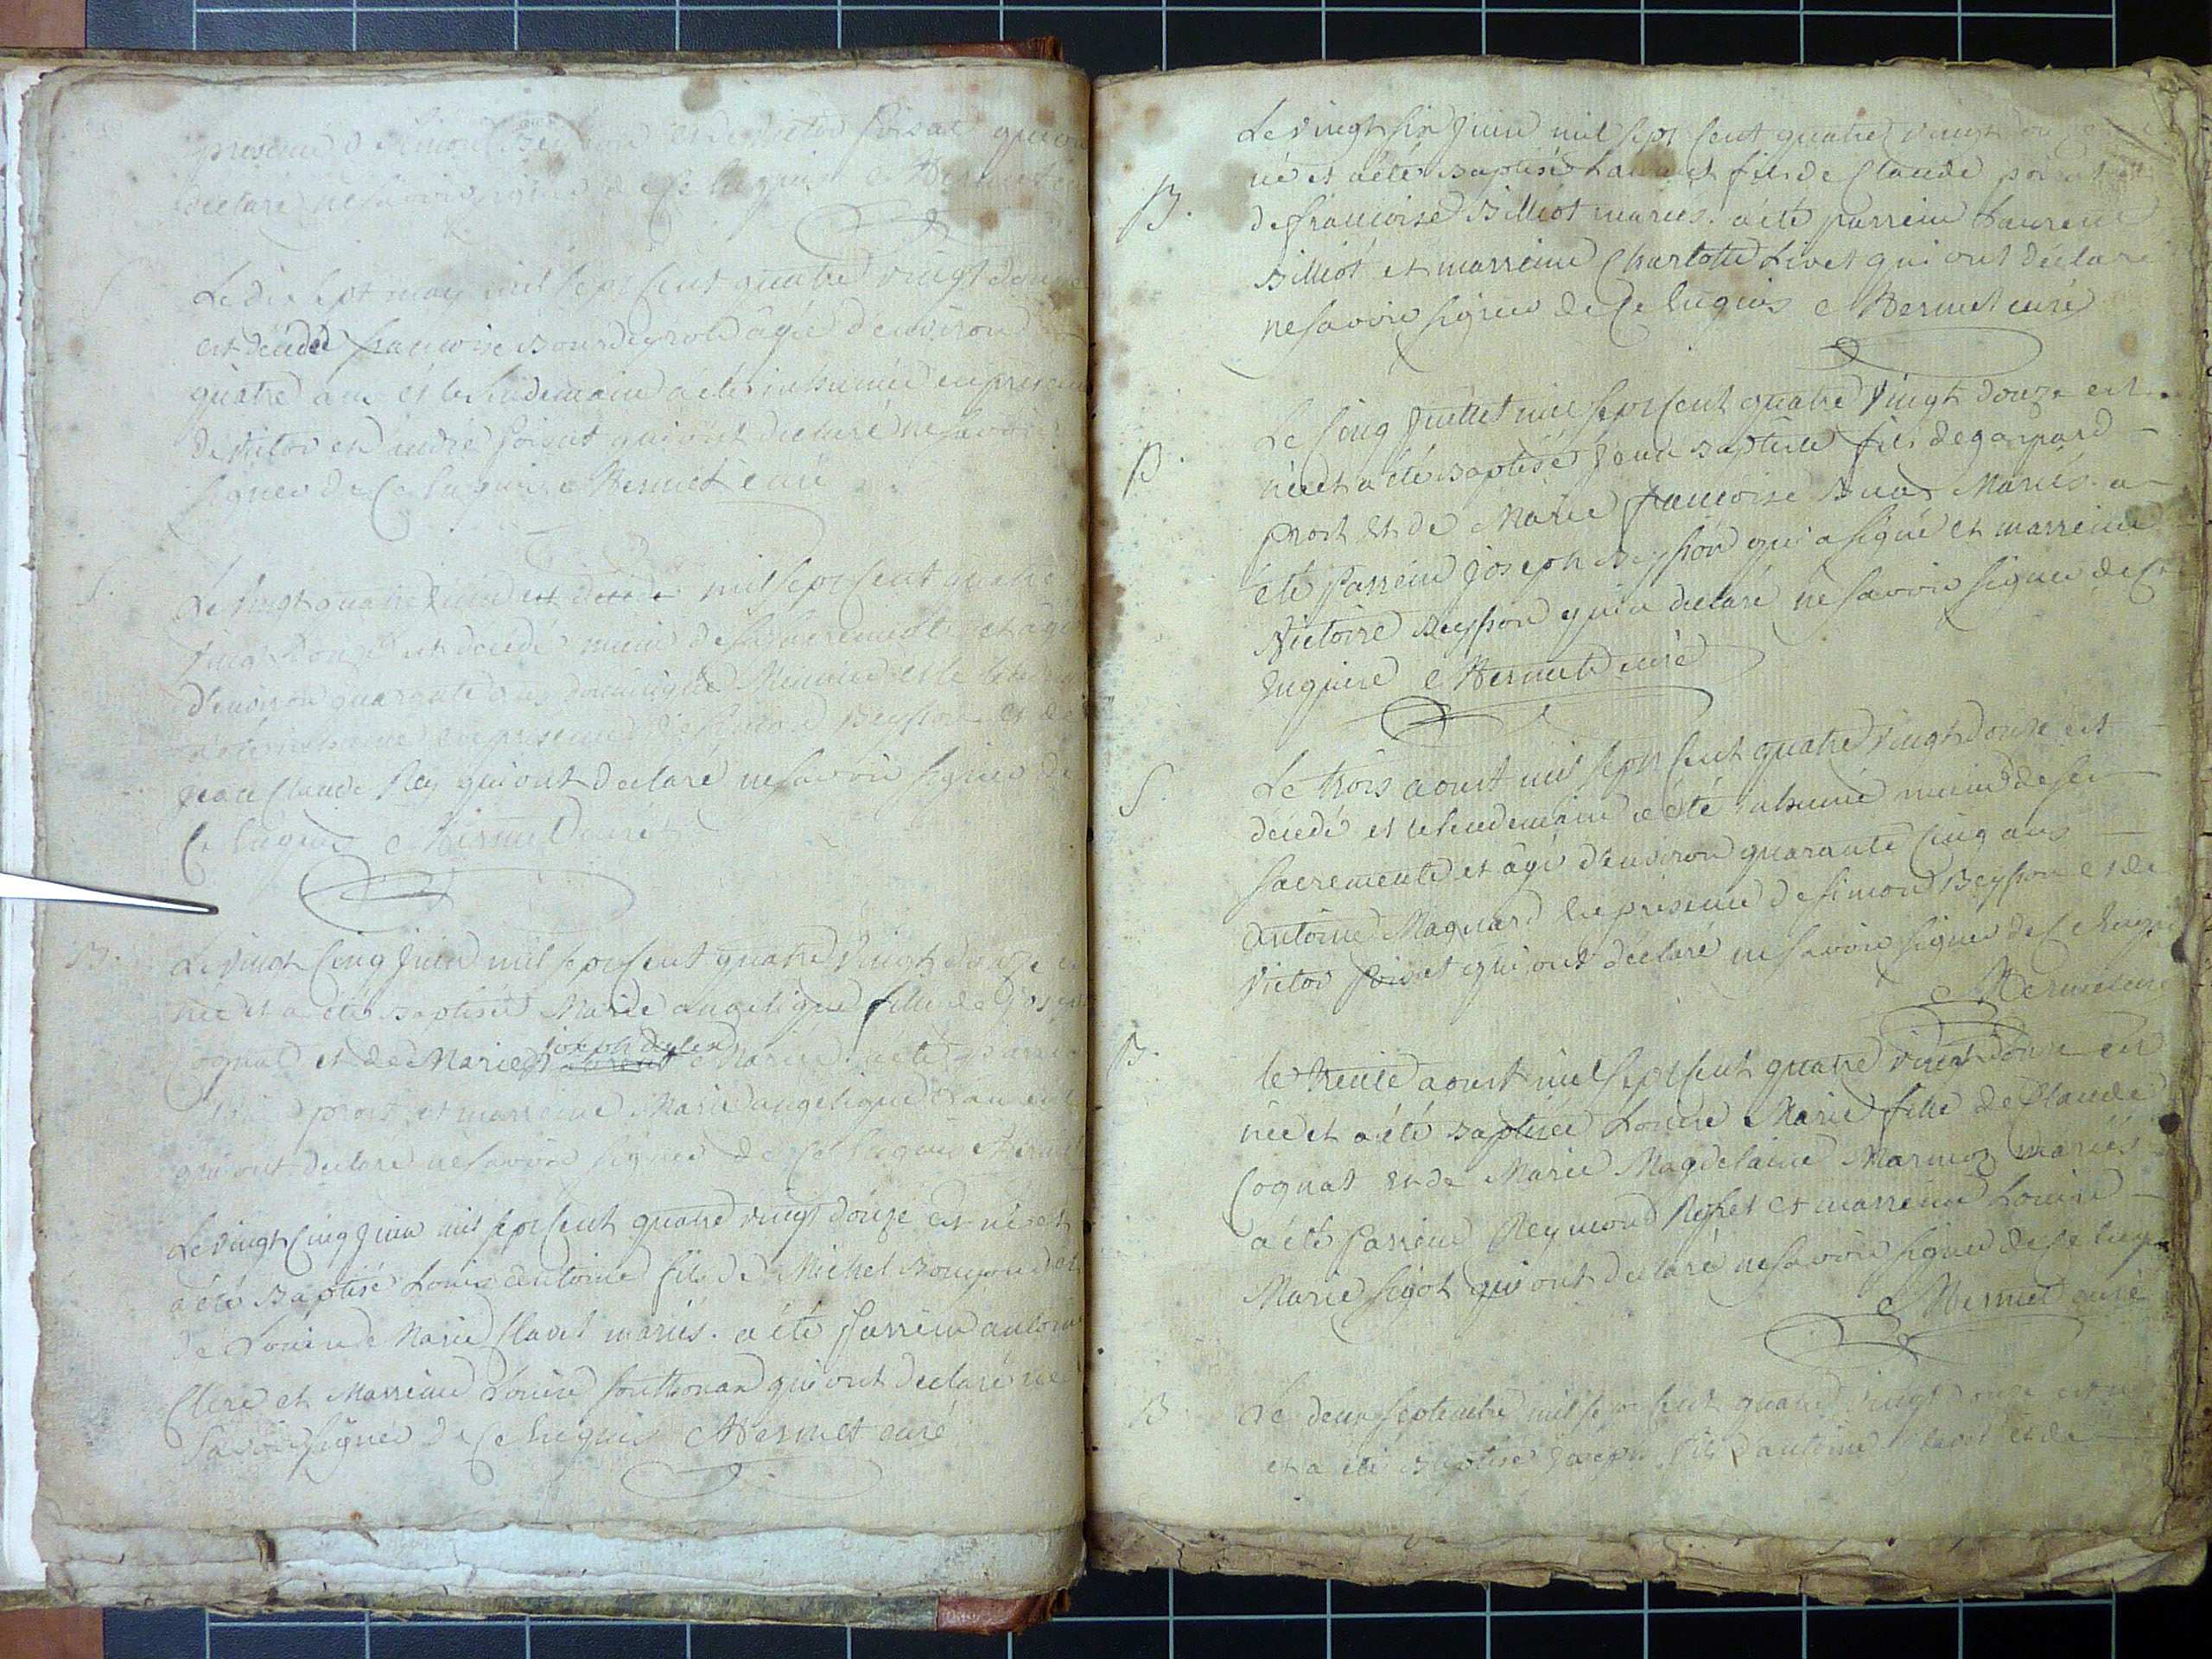 presence de Simon Beysson et de victor poisat qui ont
declaré ne savoir signer de ce enquis e Hermet
S
Le dix sept may mil sept cent quatre vingt douze
est décédé francoise agée d'environ
quatre ans et le lendemain a été inhumée en presence
de victor et poisat qui ont declaré ne savoir
signer de ce enquis e Hermet curé
S.
Le vingt quatre juin est decedé mil sept cent quatre
vingt douze est decedé muni de ses sacrements et agé
d'environ quarante ans dominique et le lendemain
a été inhumé en presence de Simon Beysson et de
jean Claude Rey qui ont declaré ne savoir signer de
ce enquis e Hermet curé
B.
Le vingt cinq juin mil sept cent quatre vingt douze est
née et a été baptisée Marie angelique fille de joseph
Cognat et de Marie joseph mariés a été parrein
prost et marreine Marie angelique
qui ont declaré ne savoir signer de ce enquis e Hermet
Le vingt cinq juin mil sept cent quatre vingt douze est né et
a été Baptisé Louis antoine fils de Michel et
de Louise Marie Clavet mariés. a été Parrein antoine
Clere et Marreine Louise qui ont declaré ne
savoir signer de ce enquis e Hermet curé
Le vingt six juin mil sept cent quatre vingt douze
B.
né et a été baptisé Laurent fils de Claude poisat et
de francoise Billiot mariés. a été parrein Laurent
Billiot et marreine Charlotte Livet qui ont declaré
ne savoir signer de ce enquis e Hermet curé
Le Cinq juillet mil sept cent quatre vingt douze est
B.
né et a été Baptisé jean Baptiste fils de gaspard
prost et de Marie francoise Mariés. a
été Parrein joseph Beysson qui a signé et marreine
Victoire Beysson qui a declaré ne savoir signer de ce
Enquise e Hermet curé
Le trois aoust mil sept cent quatre vingt douze est
S.
decedé et le lendemain a été inhumé muni de ses
sacrements et âgé d'environ quarante cinq ans
antoine Magnard en presence de simon Beysson et de
victor poisat qui ont déclaré ne savoir signer de ce enquis
e Hermet curé
B.
le trente aoust mil sept cent quatre vingt douze est
née et a été baptisée Louise Marie fille de Claude
Cognat et de Marie Magdelaine Marmoz mariés
a été Parrein Reymond et marreine Louise
Marie qui ont declaré ne savoir signer de ce enquis
e Hermet curé
B
Le deux septembre mil sept cent quatre vingt douze est né
et a été Baptisé joseph fils d'antoine et de